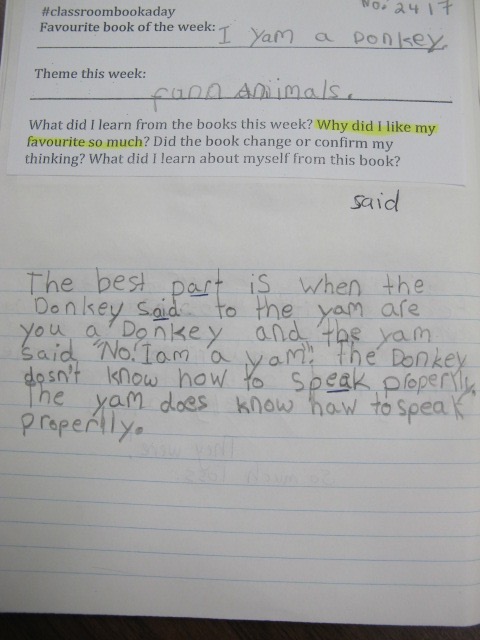 #classroombookaday
No: 2417
Favourite book of the week: I yam a Donkey.
Theme this week:
farm Animals.
What did I learn from the books this week? Why did I like my
favourite so much? Did the book change or confirm my
thinking? What did I learn about myself from this book?
said
The best part is when the
Donkey said to the yam are
you a Donkey and the yam
said "No! I am a yam". the Donkey
dosn't know how to speak properlly.
The yam does know haw to speak
properlly.